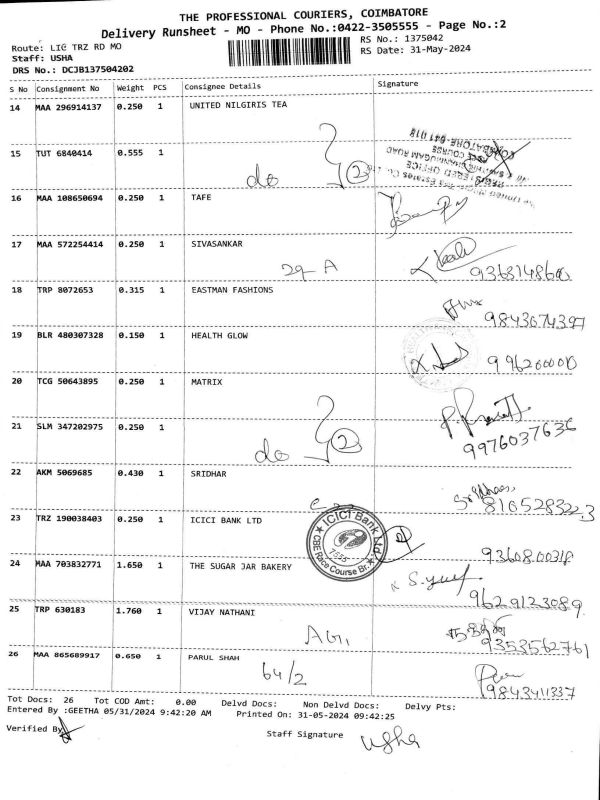 THE PROFESSIONAL COURIERS, COIMBATORE
Delivery Runsheet - MO - Phone No.:0422-3505555 - Page No.:2
Route: LIC TRZ RD MO
RS No.: 1375042
Staff: USHA
RS Date: 31-May-2024
DRS No.: DCJB137504202
S No Consignment No Weight PCS Consignee Details Signature
14 MAA 296914137 0.250 1 UNITED NILGIRIS TEA
15 TUT 6840414 0.555 1
do 2
REGISTERED OFFICE
16 MAA 108650694 0.250 1 TAFE
17 MAA 572254414 0.250 1 SIVASANKAR
29 A
18 TRP 8072653 0.315 1 EASTMAN FASHIONS
9843074397
19 BLR 480307328 0.150 1 HEALTH GLOW
20 TCG 50643895 0.250 1 MATRIX
21 SLM 347202975 0.250 1
do 2
9976037636
22 AKM 5069685 0.430 1 SRIDHAR
23 TRZ 190038403 0.250 1 ICICI BANK LTD
ICICI Bank Ltd.
CBE Race Course Br.
24 MAA 703832771 1.650 1 THE SUGAR JAR BAKERY
9360800318
9629123089
25 TRP 630183 1.760 1 VIJAY NATHANI
9353562761
26 MAA 865689917 0.650 1 PARUL SHAH
64/2
9843411337
Tot Docs: 26 Tot COD Amt: 0.00 Delvd Docs: Non Delvd Docs: Delvy Pts:
Entered By :GEETHA 05/31/2024 9:42:20 AM Printed On: 31-05-2024 09:42:25
Verified By
Staff Signature
usha